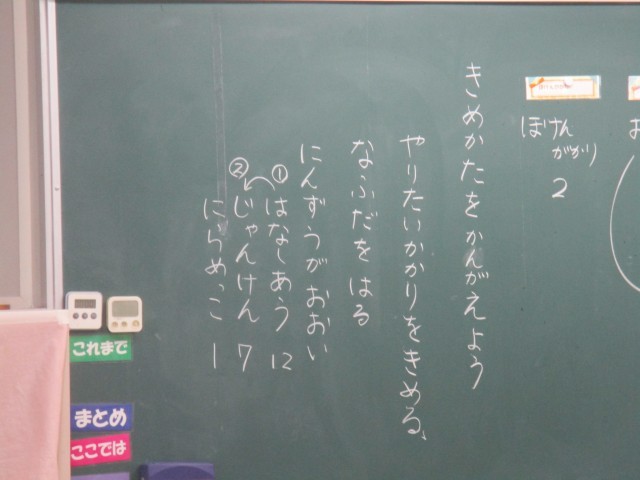 ほけん
がかり
2
きめかたをかんがえよう
やりたいかかりをきめる、
なふだをはる
にんずうがおおい
① はなしあう 12
② じゃんけん 7
にらめっこ 1
これまで
まとめ
ここでは